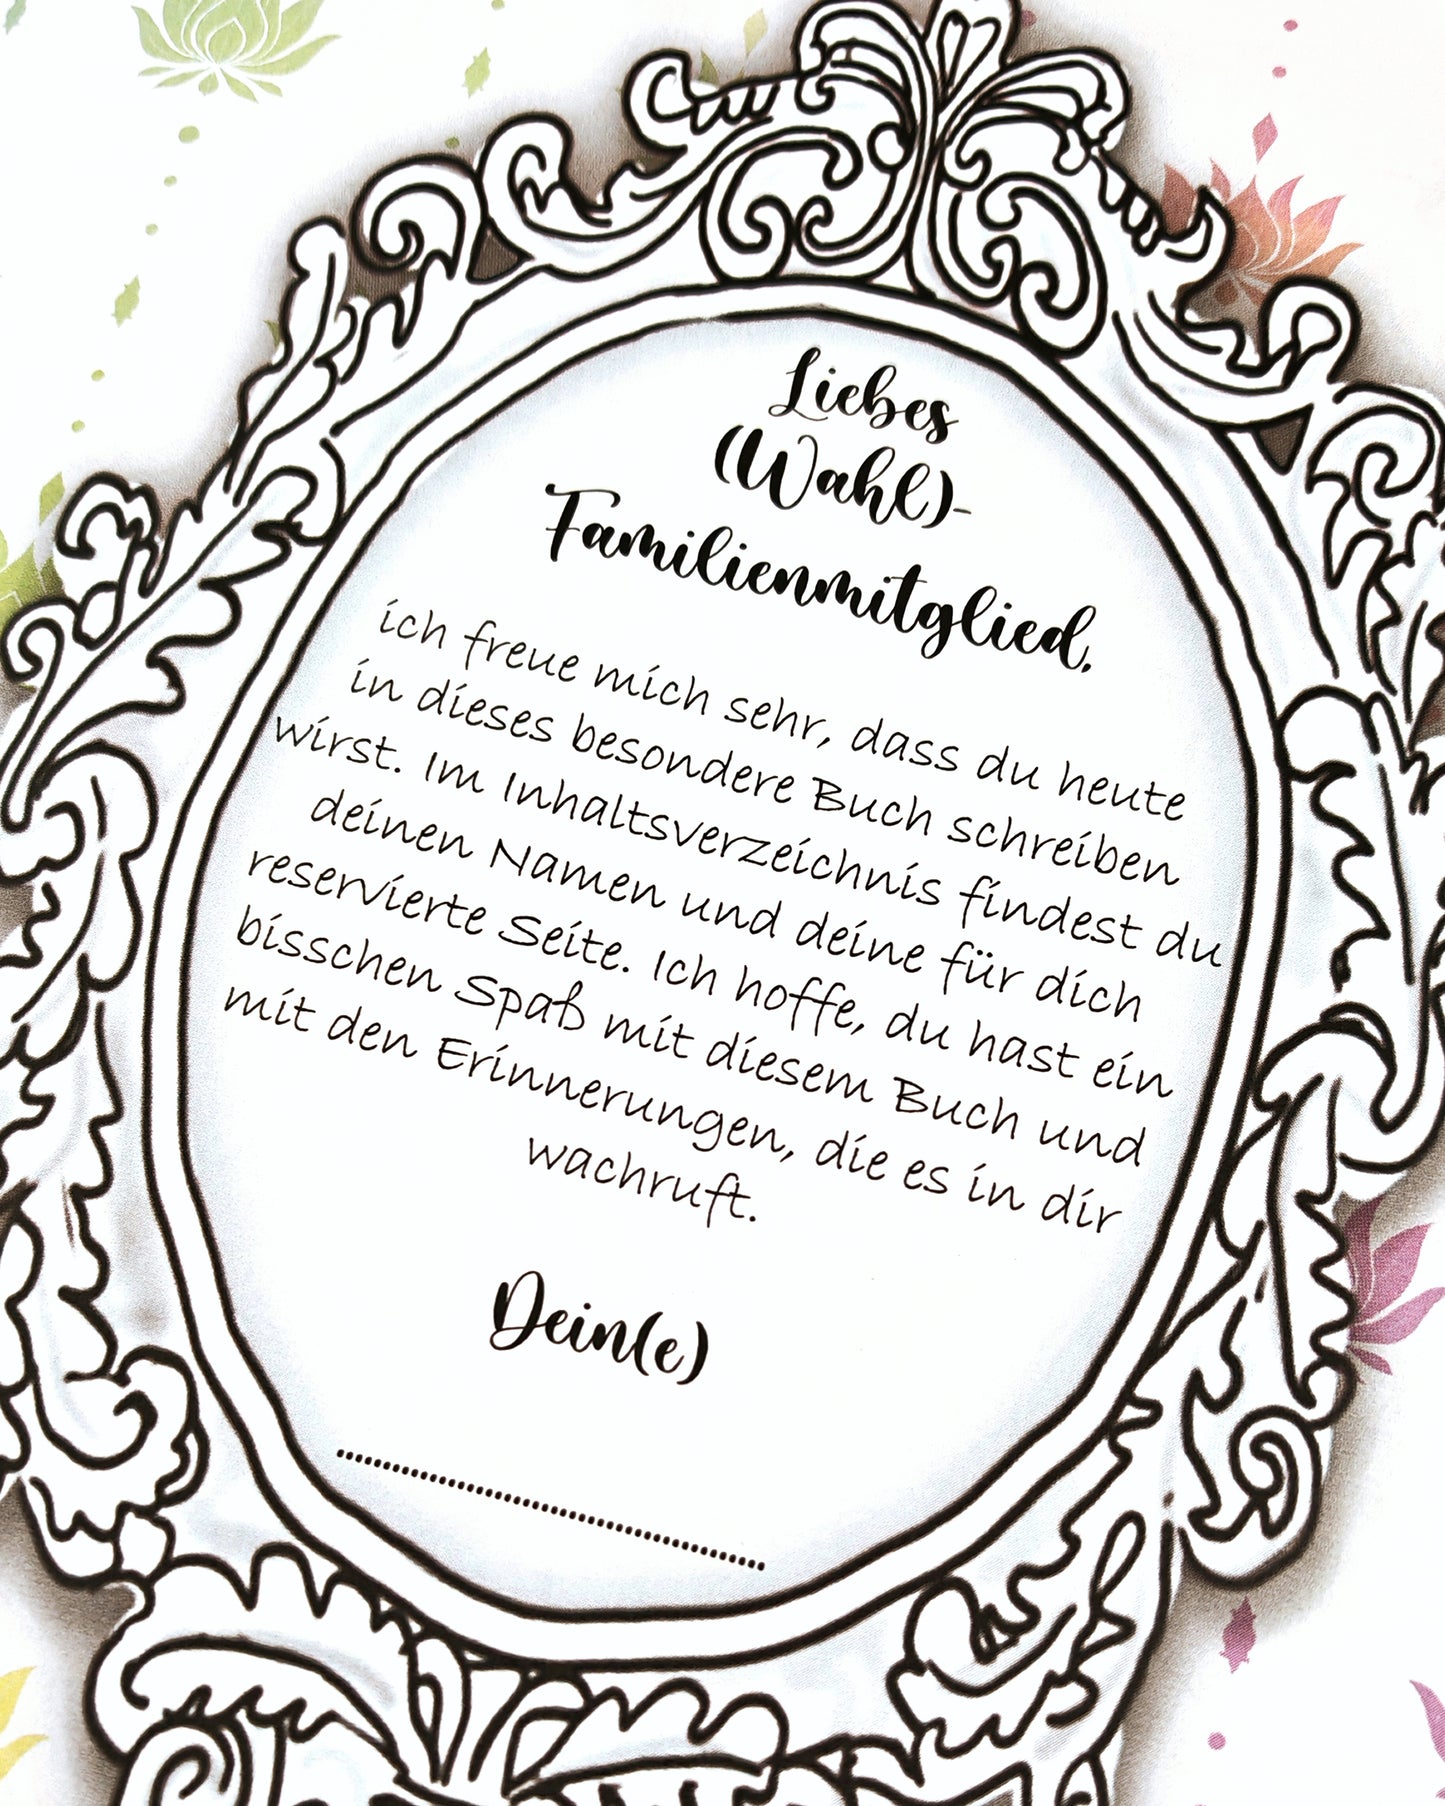 Liebes
(Wahl)-
Familienmitglied,
ich freue mich sehr, dass du heute
in dieses besondere Buch schreiben
wirst. Im Inhaltsverzeichnis findest du
deinen Namen und deine für dich
reservierte Seite. Ich hoffe, du hast ein
bisschen Spaß mit diesem Buch und
mit den Erinnerungen, die es in dir
wachruft.
Dein(e)